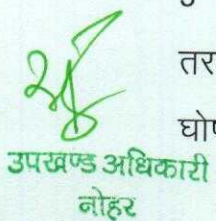 तर
घोष
उपखण्ड अधिकारी
नोहर